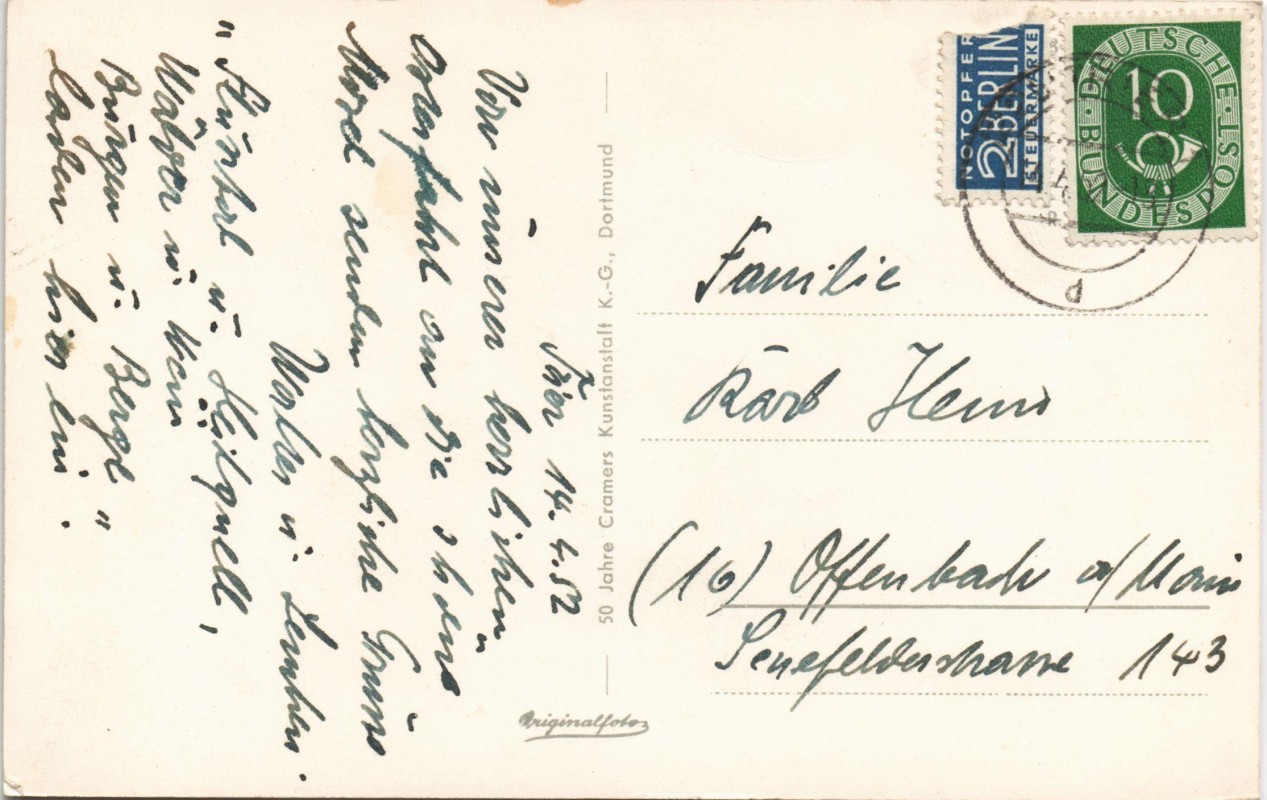 Trier 14.4.52
Von unserer herrlichen
Osterfahrt an die schöne
Mosel senden herzliche Grüße
Walter u.
"Flurtal u. Heilquell,
Wälder u. Wein
Burgen u. Berge"
laden hier ein.
50 Jahre Cramers Kunstanstalt K.-G., Dortmund
Originalfoto
NOTOPFER
2 BERLIN
STEUERMARKE
DEUTSCHE
10
BUNDESPOST
Familie
Karl
(16) Offenbach a/Main
Senefelderstrasse 143